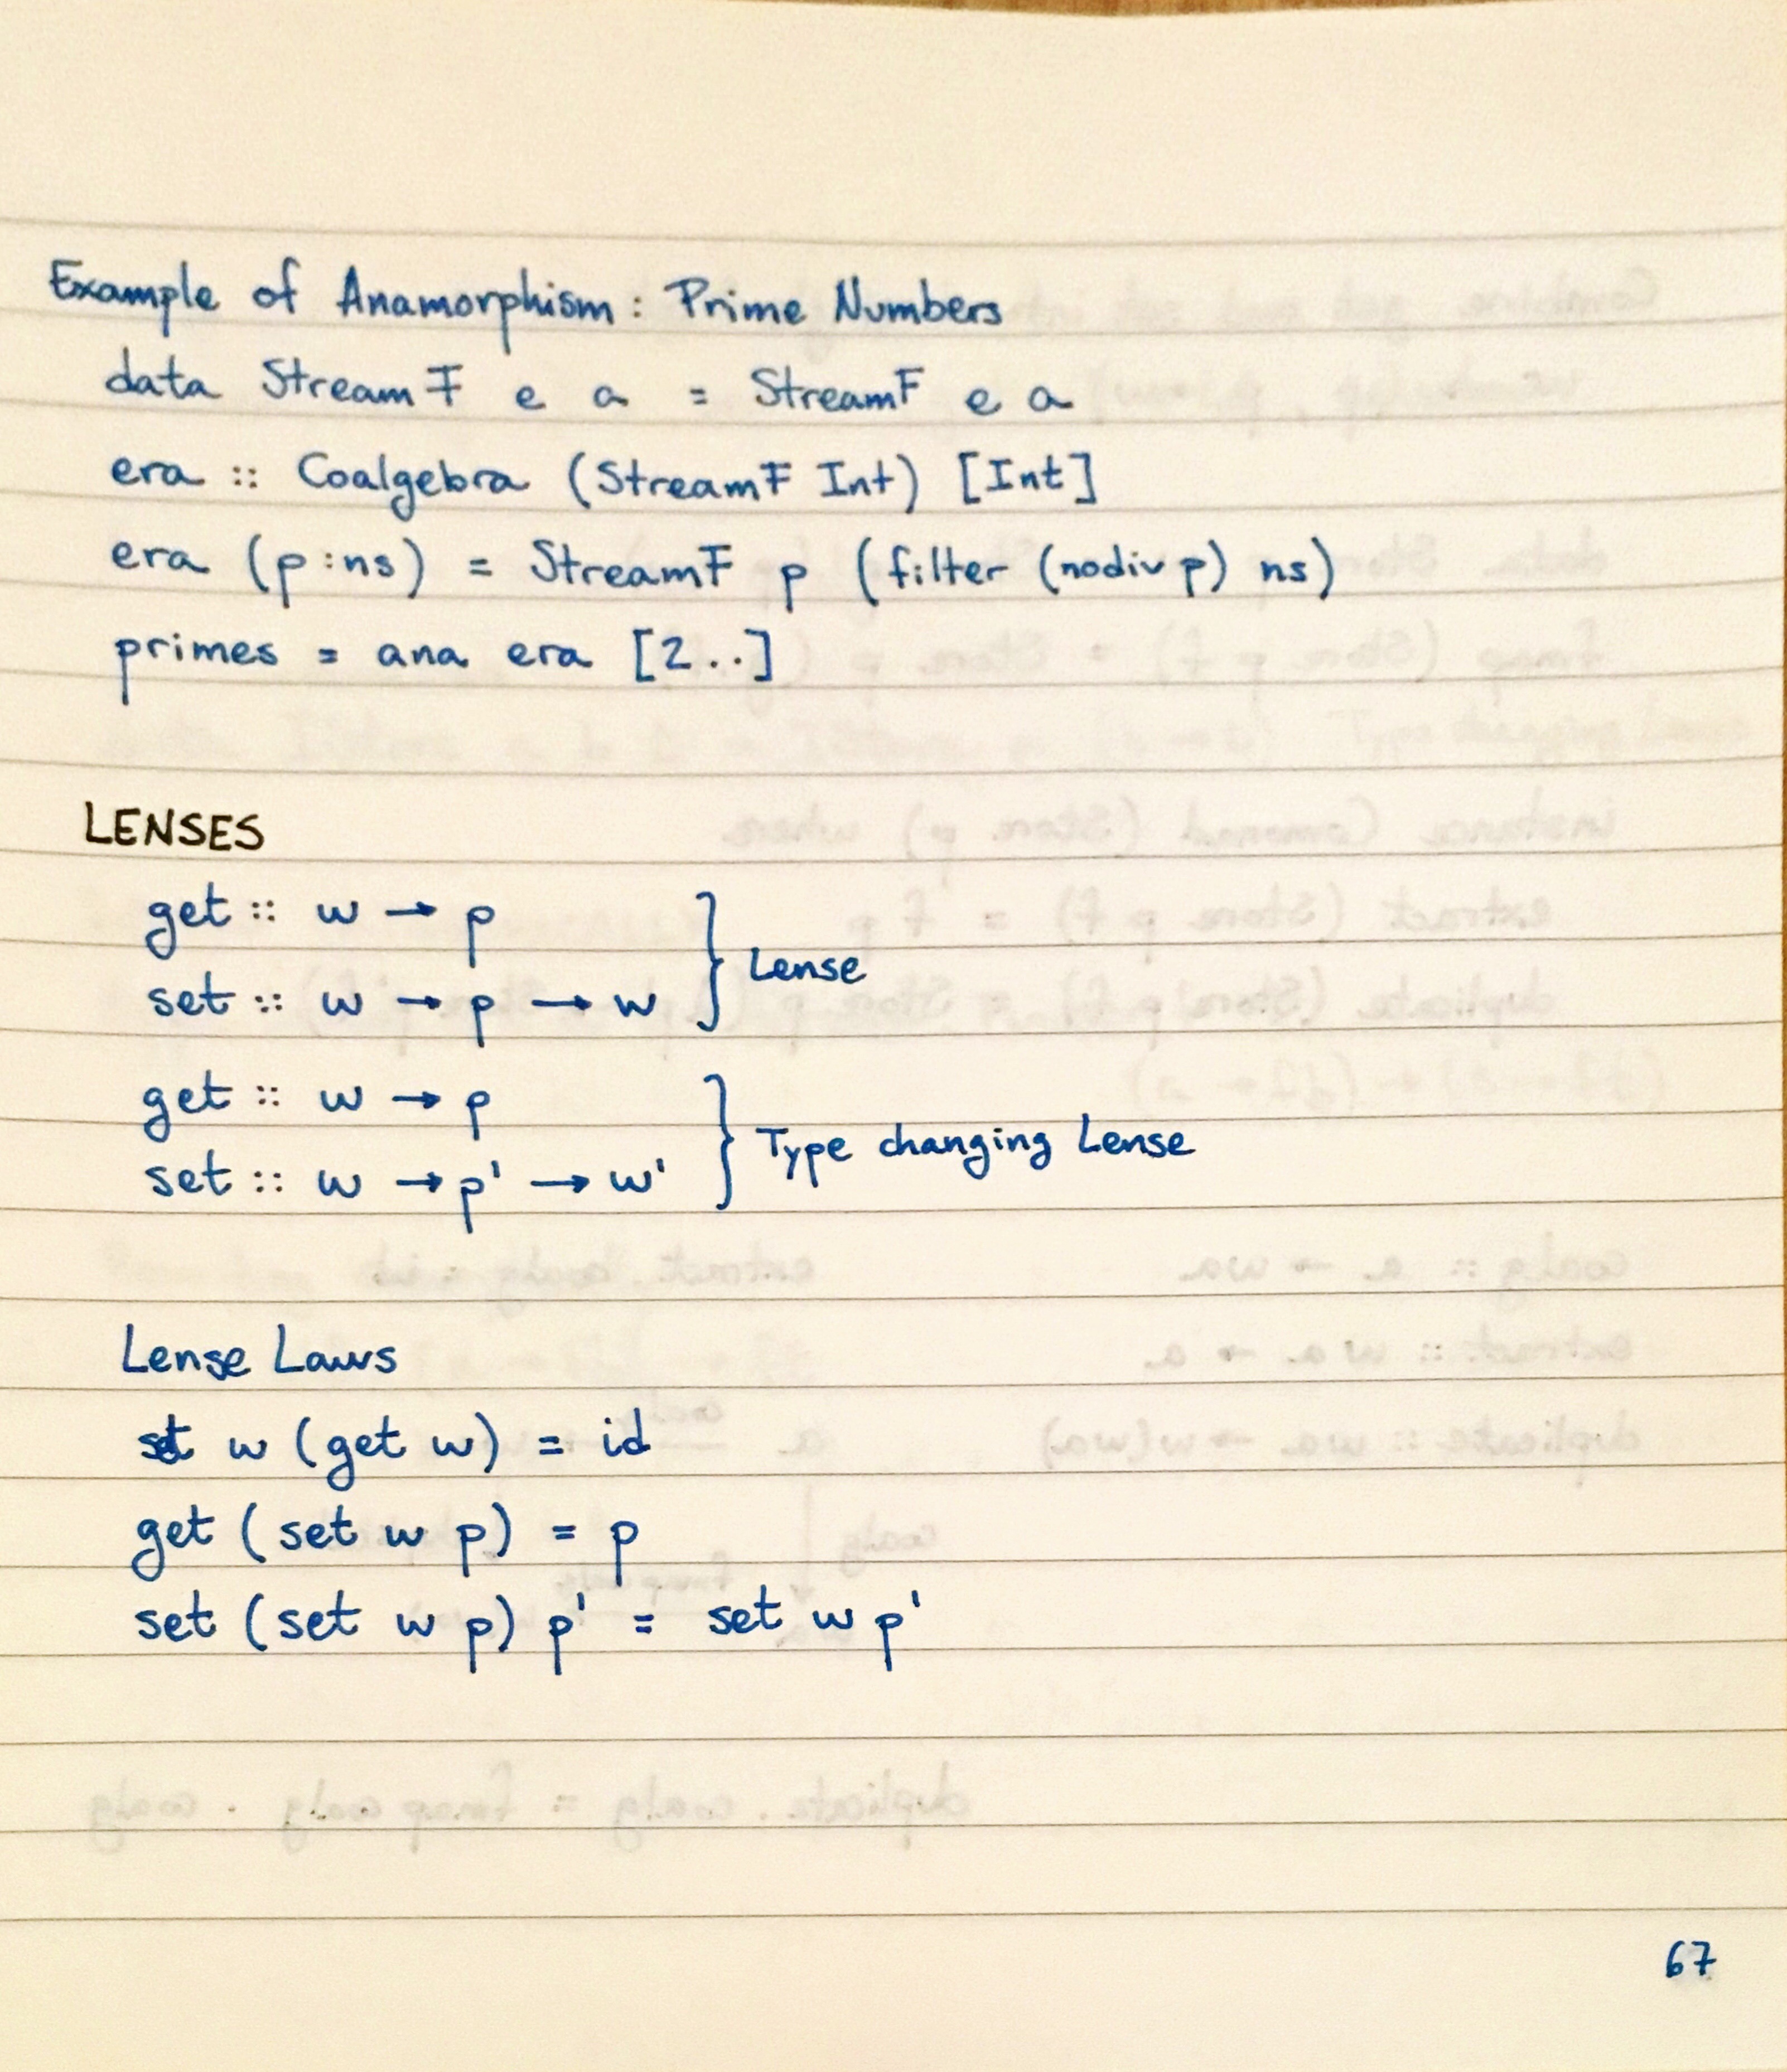 Example of Anamorphism: Prime Numbers
data StreamF e a = StreamF e a
era :: Coalgebra (StreamF Int) [Int]
era (p:ns) = StreamF p (filter (nodiv p) ns)
primes = ana era [2..]
LENSES
get :: w → p
set :: w → p → w } Lense
get :: w → p
set :: w → p' → w' } Type changing Lense
Lense Laws
set w (get w) = id
get (set w p) = p
set (set w p) p' = set w p'
67